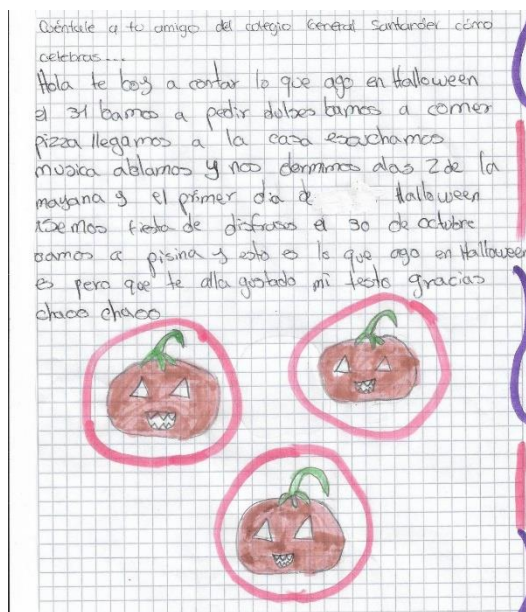 Cuéntale a tu amigo del colegio General Santander cómo
celebras...
Hola te boy a contar lo que ago en Halloween
el 31 bamos a pedir dulses bamos a comer
pizza llegamos a la casa escuchamos
musica ablamos y nos dermimos alas 2 de la
mayana y el primer dia de Halloween
asemos fiesta de disfraso el 30 de octubre
bamos a pisina y esto es lo que ago en Halloween
es pero que te alla gustado mi testo gracias
chaoo chaoo